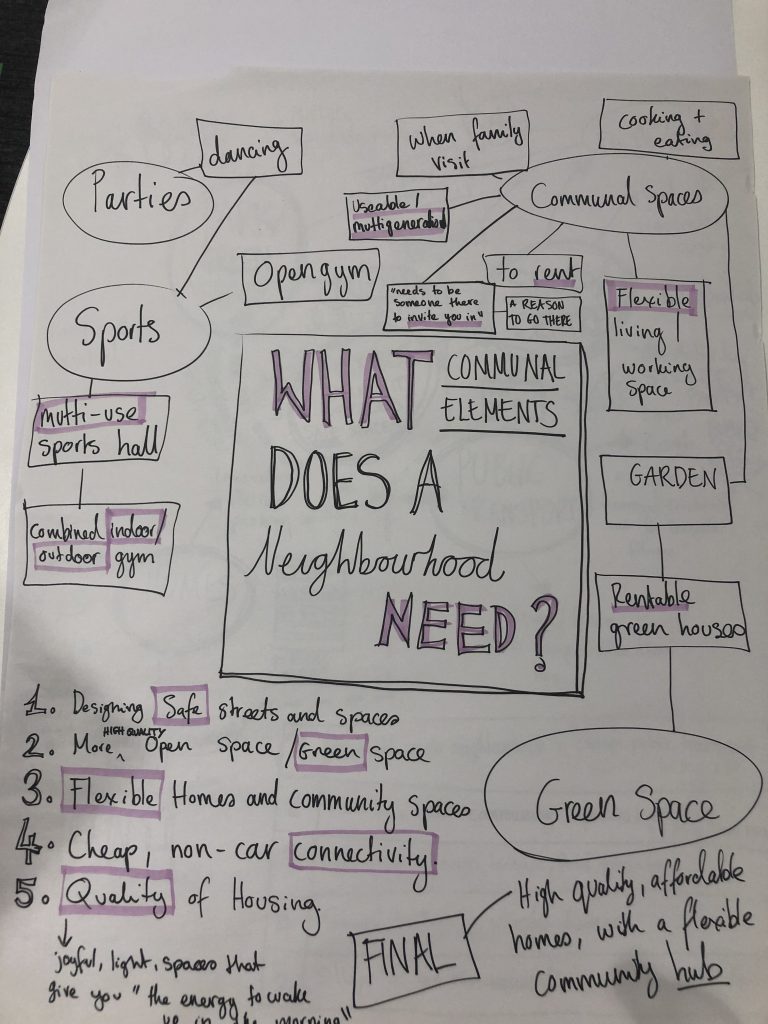 cooking +
eating
When family
visit
dancing
Parties
Communal Spaces
Useable /
multigenerational
Open gym
to rent
"needs to be
someone there
to invite you in"
A REASON
TO GO THERE
Flexible
living /
working
space
Sports
WHAT COMMUNAL
ELEMENTS
DOES A
Neighbourhood
NEED?
multi-use
sports hall
combined indoor/
outdoor gym
GARDEN
Rentable
green houses
Green Space
1. Designing Safe streets and spaces
2. More HIGH QUALITY Open space / Green space
3. Flexible Homes and community spaces
4. Cheap, non-car connectivity.
5. Quality of Housing.
joyful, light, spaces that
give you "the energy to wake
up in the morning"
FINAL
High quality, affordable
homes, with a flexible
community hub